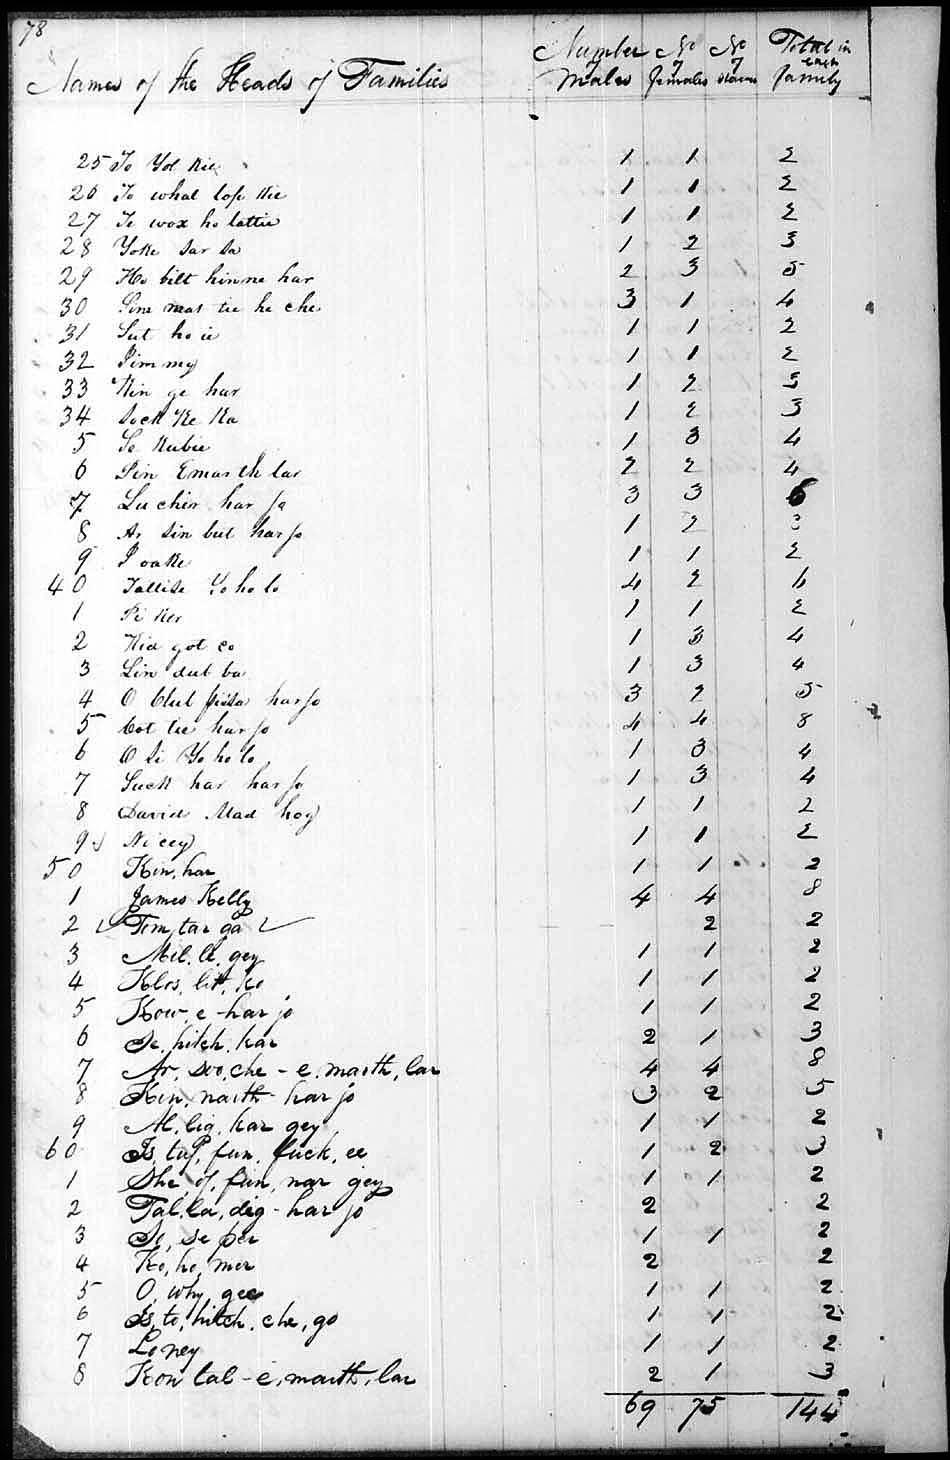 78
Names of the Heads of Families Number of Males No of females No of slaves Total in each family
25 To Yol Kie 1 1 2
26 To whal lofs Kie 1 1 2
27 Te wox ho lattie 1 1 2
28 Yoke sar sa 1 2 3
29 Ho bilt hinne har 2 3 5
30 Sin mas tee he che 3 1 4
31 Sut ho ie 1 1 2
32 Jimmy 1 1 2
33 Kin ge har 1 2 3
34 Sock Ke Ka 1 2 3
5 So Kubie 1 3 4
6 Pin Emarth lar 2 2 4
7 Lu chin har jo 3 3 6
8 Ar sin but harjo 1 2 3
9 I oake 1 1 2
40 Tallisa Yo ho lo 4 2 6
1 Pi Ker 1 1 2
2 Kia got co 1 3 4
3 Lin dub ba 1 3 4
4 O Club harjo 3 2 5
5 Cot tee harjo 4 4 8
6 O Si Yo ho lo 1 3 4
7 Suck har harjo 1 3 4
8 David Mad hog 1 1 2
9 Nicey 1 1 2
50 Kin, har 1 1 2
1 James Kelly 4 4 8
2 Tim, tar ga 2 2
3 Mil. le, gey 1 1 2
4 Klos, lit, ko 1 1 2
5 Kow, e - har jo 1 1 2
6 Se, hitch, kar 2 1 3
7 Ar, soo, che - e. marth, lar 4 4 8
8 Kin, narth - har jo 3 2 5
9 Al. lig, kar gey 1 1 2
60 Is, tuf, fun, fuck, ee 1 2 3
1 She, of, fun, nar gey 1 1 2
2 Tal. la, dig - har jo 2 2
3 So, se per 1 1 2
4 Ko, ho, mer 2 2
5 O, why, gee 1 1 2
6 Is, to, hitch, che, go 1 1 2
7 Loney 1 1 2
8 Kon tal - e, marth, lar 2 1 3
69 75 144